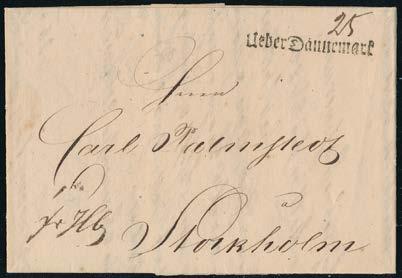 25
Ueber Dännemark
Herrn
Carl Palmstedt
à
fr Hbg
Stockholm